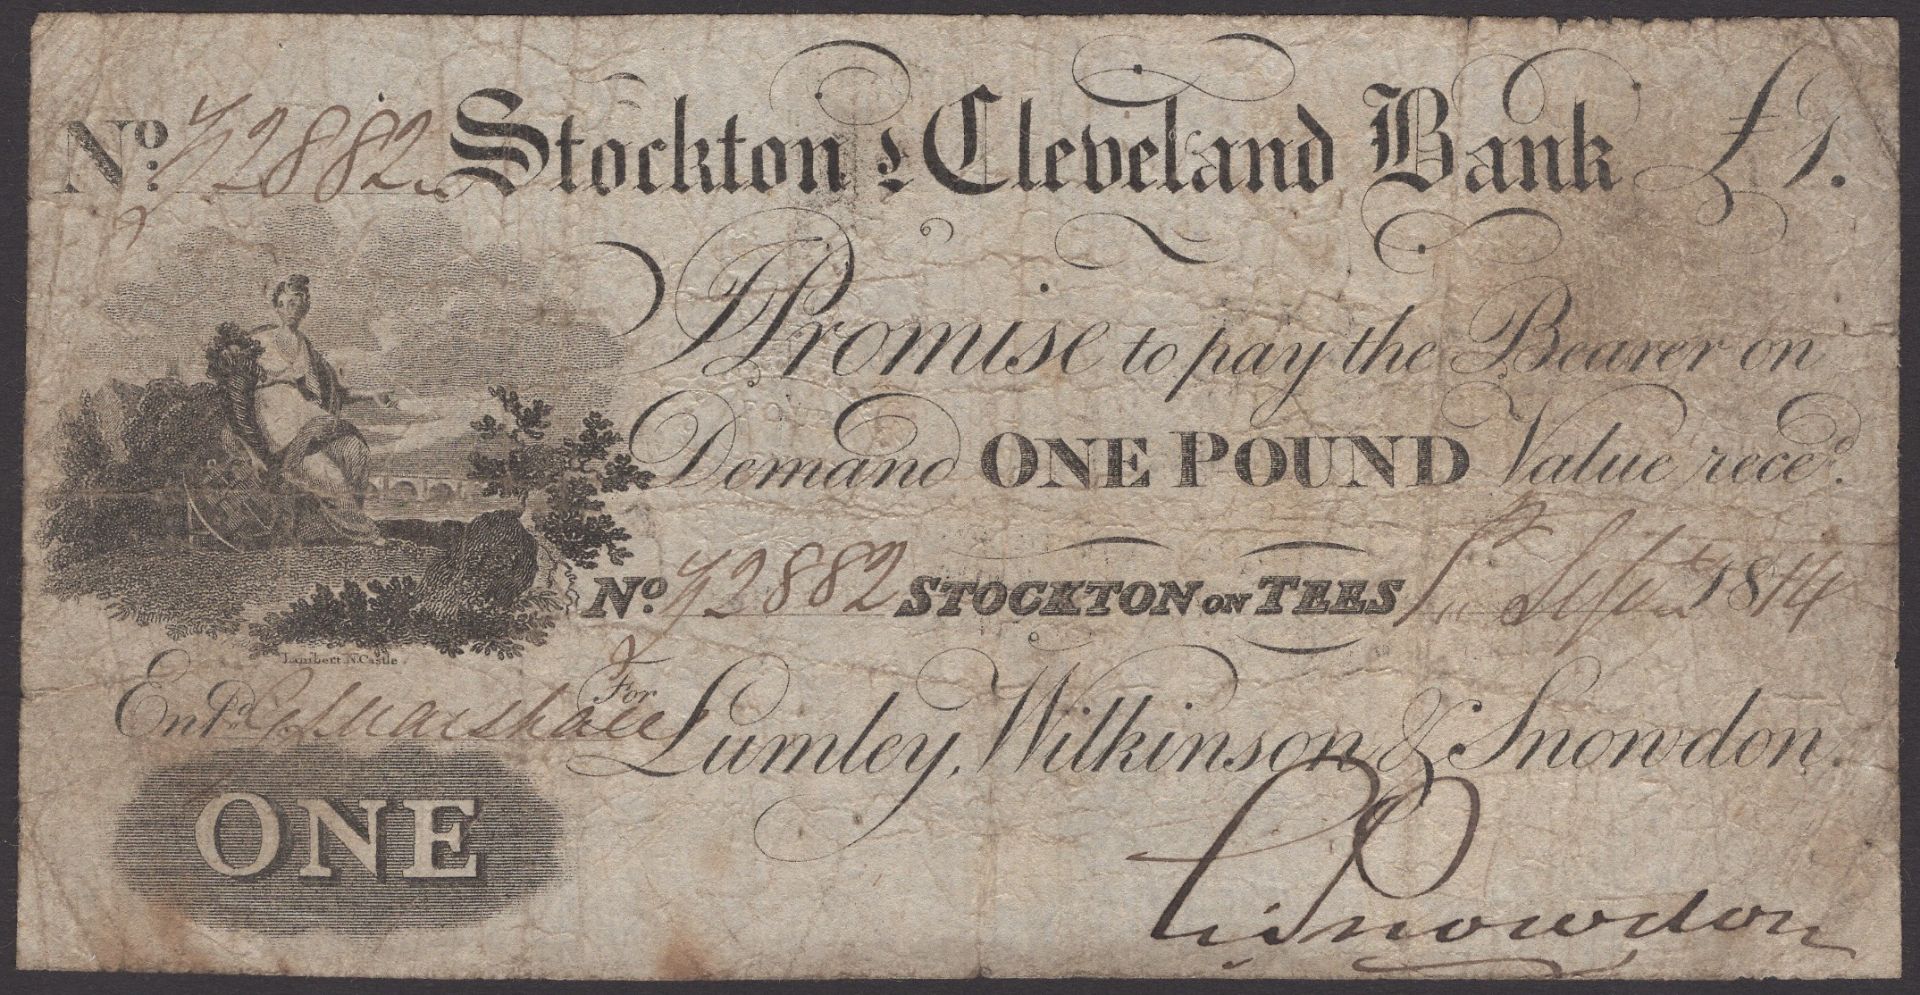 No. Y2882 Stockton & Cleveland Bank £1.
I Promise to pay the Bearer on
Demand ONE POUND Value reced.
No. Y2882 STOCKTON ON TEES 1st Septr 1814
Lambert N.Castle
Entd. G Marshall For Lumley, Wilkinson & Snowdon.
ONE
Snowdon